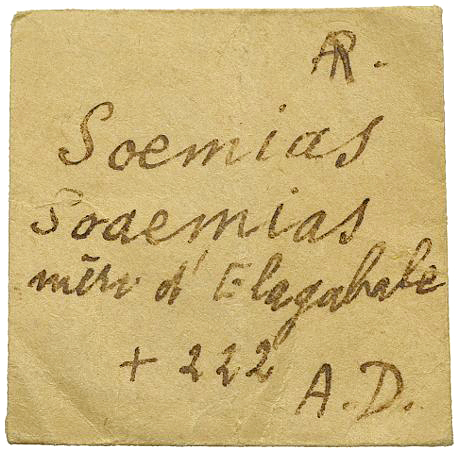 AR.
Soemias
Soaemias
mère d'Elagabale
+ 222
A.D.